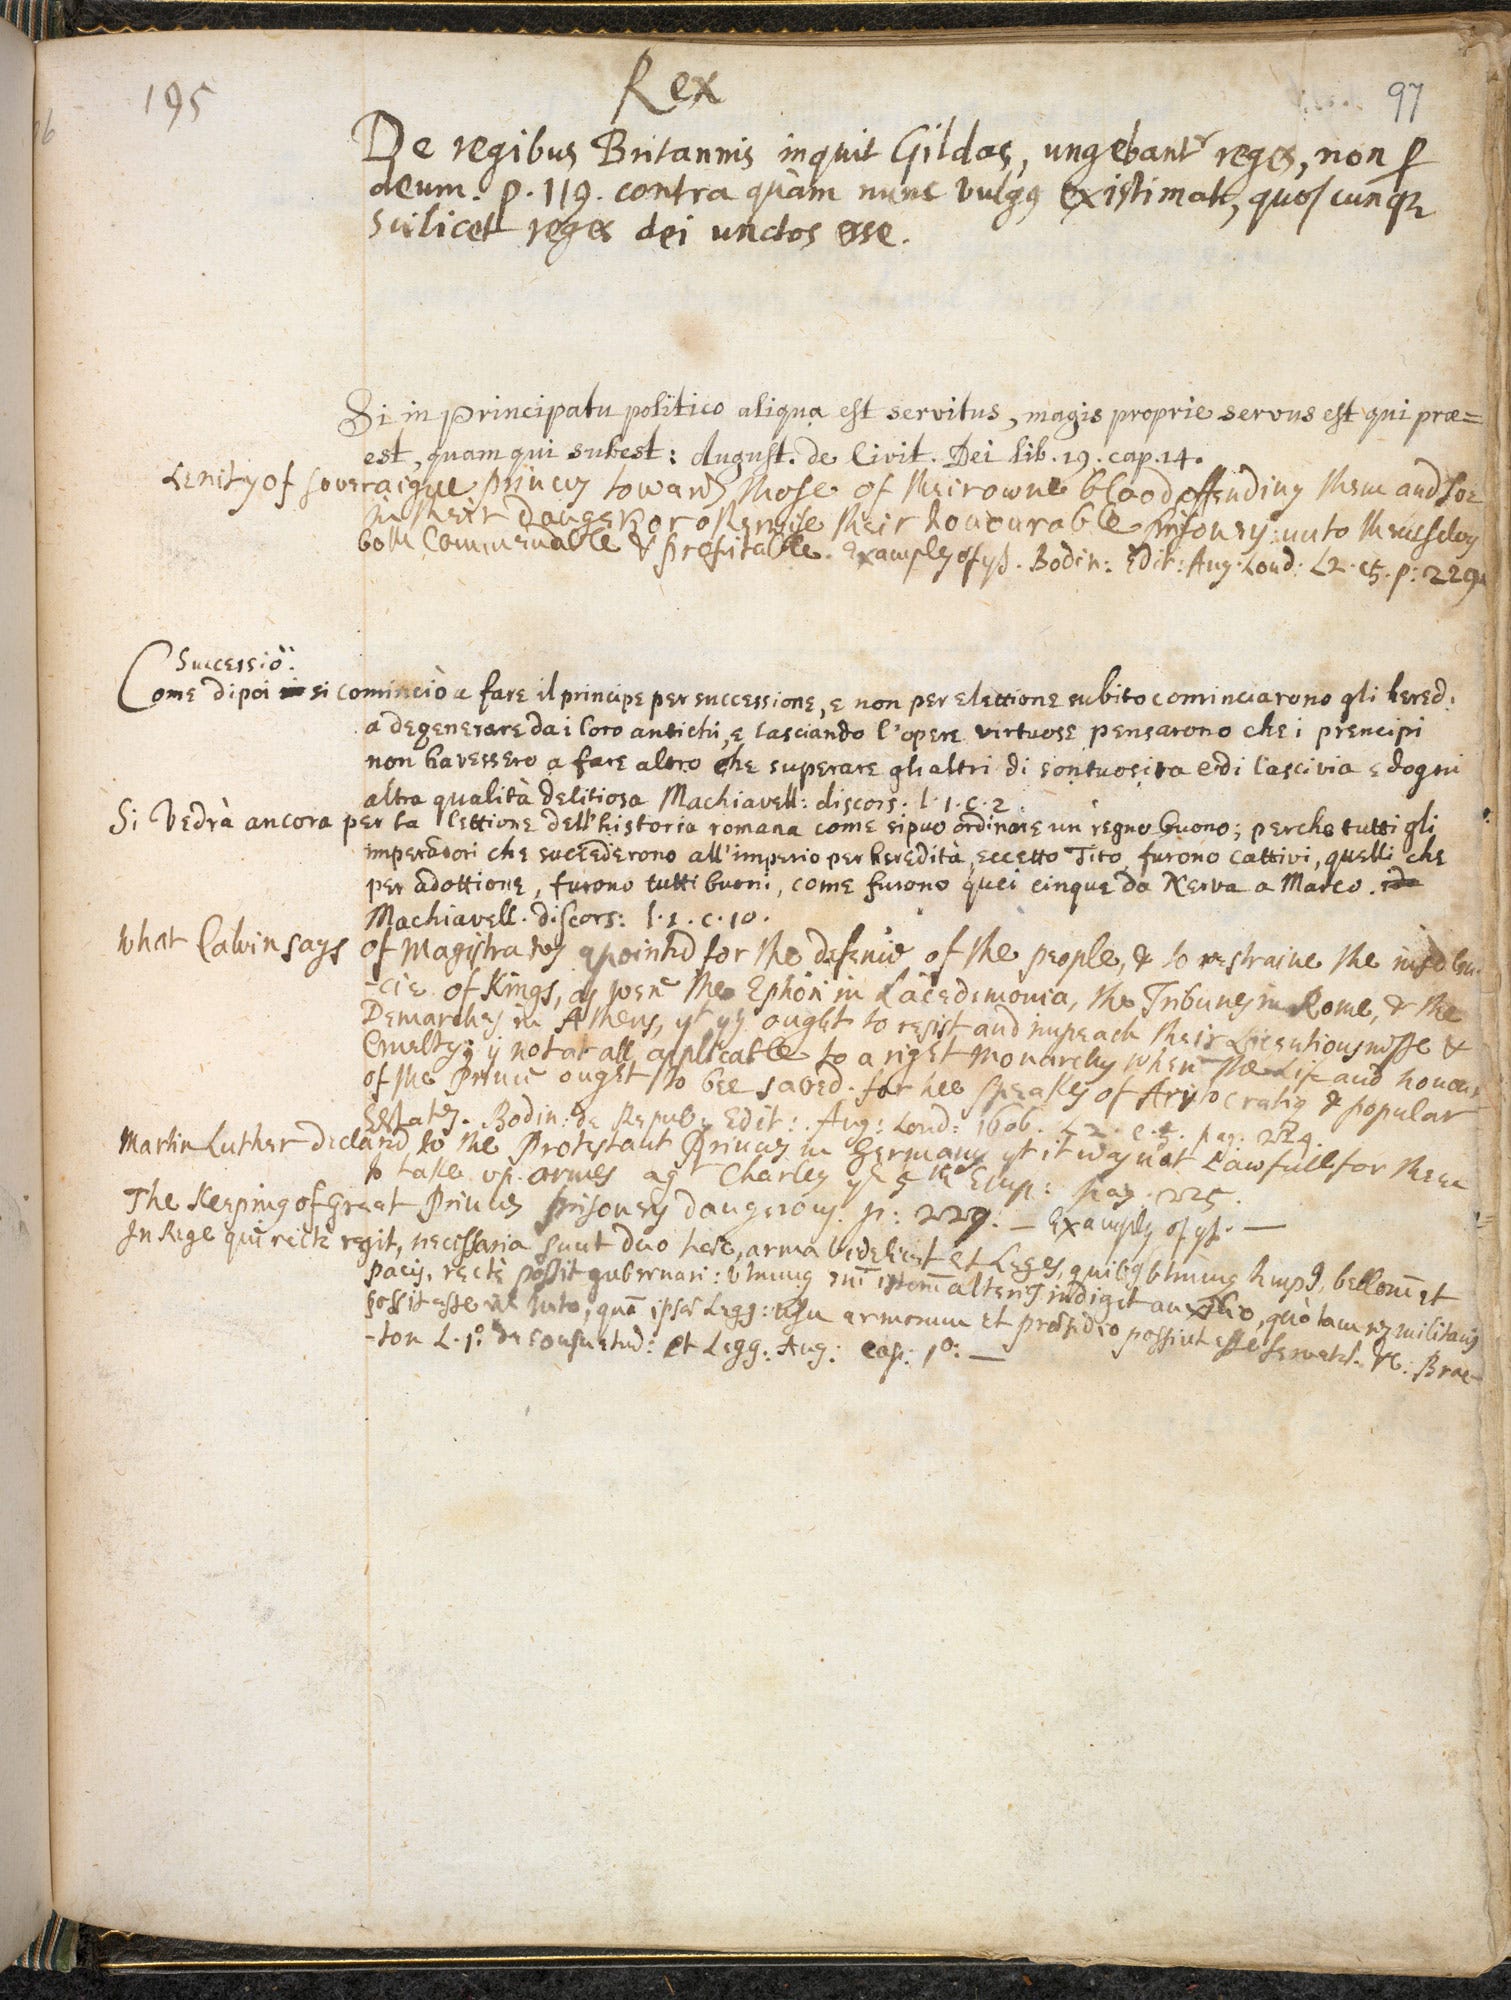 195
Rex
97
De regibus Britannis inquit Gildas, ungebantr reges, non ꝑ
deum. p. 119. contra quàm nunc vulgꝰ existimat, quoscunqꝫ
scilicet reges dei unctos esse.
Si in principatu politico aliqua est servitus, magis proprie servus est qui præ=
est, quam qui subest: August. de Civit. Dei lib. 19. cap. 14.
Lenity of soveraigne princes towards those of their owne blood offending them and soe
in their danger or otherwise their honourable prisoners: unto themselves
both Commendable & profitable. Examples of ys. Bodin: Edit: Ang. Lond: L2. c5. p: 229
Successiō:
Come dipoi si cominciò a fare il principe per successione, e non per elettione subito cominciarono gli hered:
a degenerare dai loro antichi, e lasciando l'opere virtuose pensarono che i prencipi
non havessero a fare altro che superare gli altri di sontuosita e di lascivia e dogni
altra qualità delitiosa Machiavell: discors: l. 1. c. 2.
Si Vedrà ancora per la lettione dell'historia romana come si puo ordinare un regno buono; perche tutti gli
imperadori che succederono all'imperio per heredità, eccetto Tito, furono cattivi, quelli che
per adottione, furono tutti buoni, come furono quei cinque da Nerva a Marco.
Machiavell. discors: l. 1. c. 10.
What Calvin says of Magistrates apointed for the defence of the people, & to restraine the insolen-
-cie of Kings, as were the Ephori in Lacedemonia, the Tribunes in Rome, & the
Demarches in Athens, yt yy ought to resist and impeach their Licentiousnesse &
Cruelty; is not at all applicable to a right Monarchy when the Life and honour
of the Prince ought to bee saved. for hee speakes of Aristocratiq & popular
Estates. Bodin: de Repub: Edit: Ang: Lond: 1606. L2. c.5. pag: 224.
Martin Luther declared to the Protestant Princes in Germany yt it was not Lawfull for them
to take vp. armes agt Charles ye 5th Emp: pag. 225.
The Keeping of Great Princes prisoners dangerous. p: 229. — Examples of ys. —
In Rege qui recte regit, necessaria sunt duo hæc, arma videlicet et Leges, quibꝰ utrumque tempꝰ, bellorum et
pacis, rectè possit gubernari: utrumq eni istorum alteriꝰ indiget auxilio, quò tam res militaris
possit esse in tuto, quā ipsæ Legg: usu armorum et præsidio possint esse servatæ. &c: Brac-
-ton L. 1o. de consuetud: et Legg: Ang: cap: 1o: —